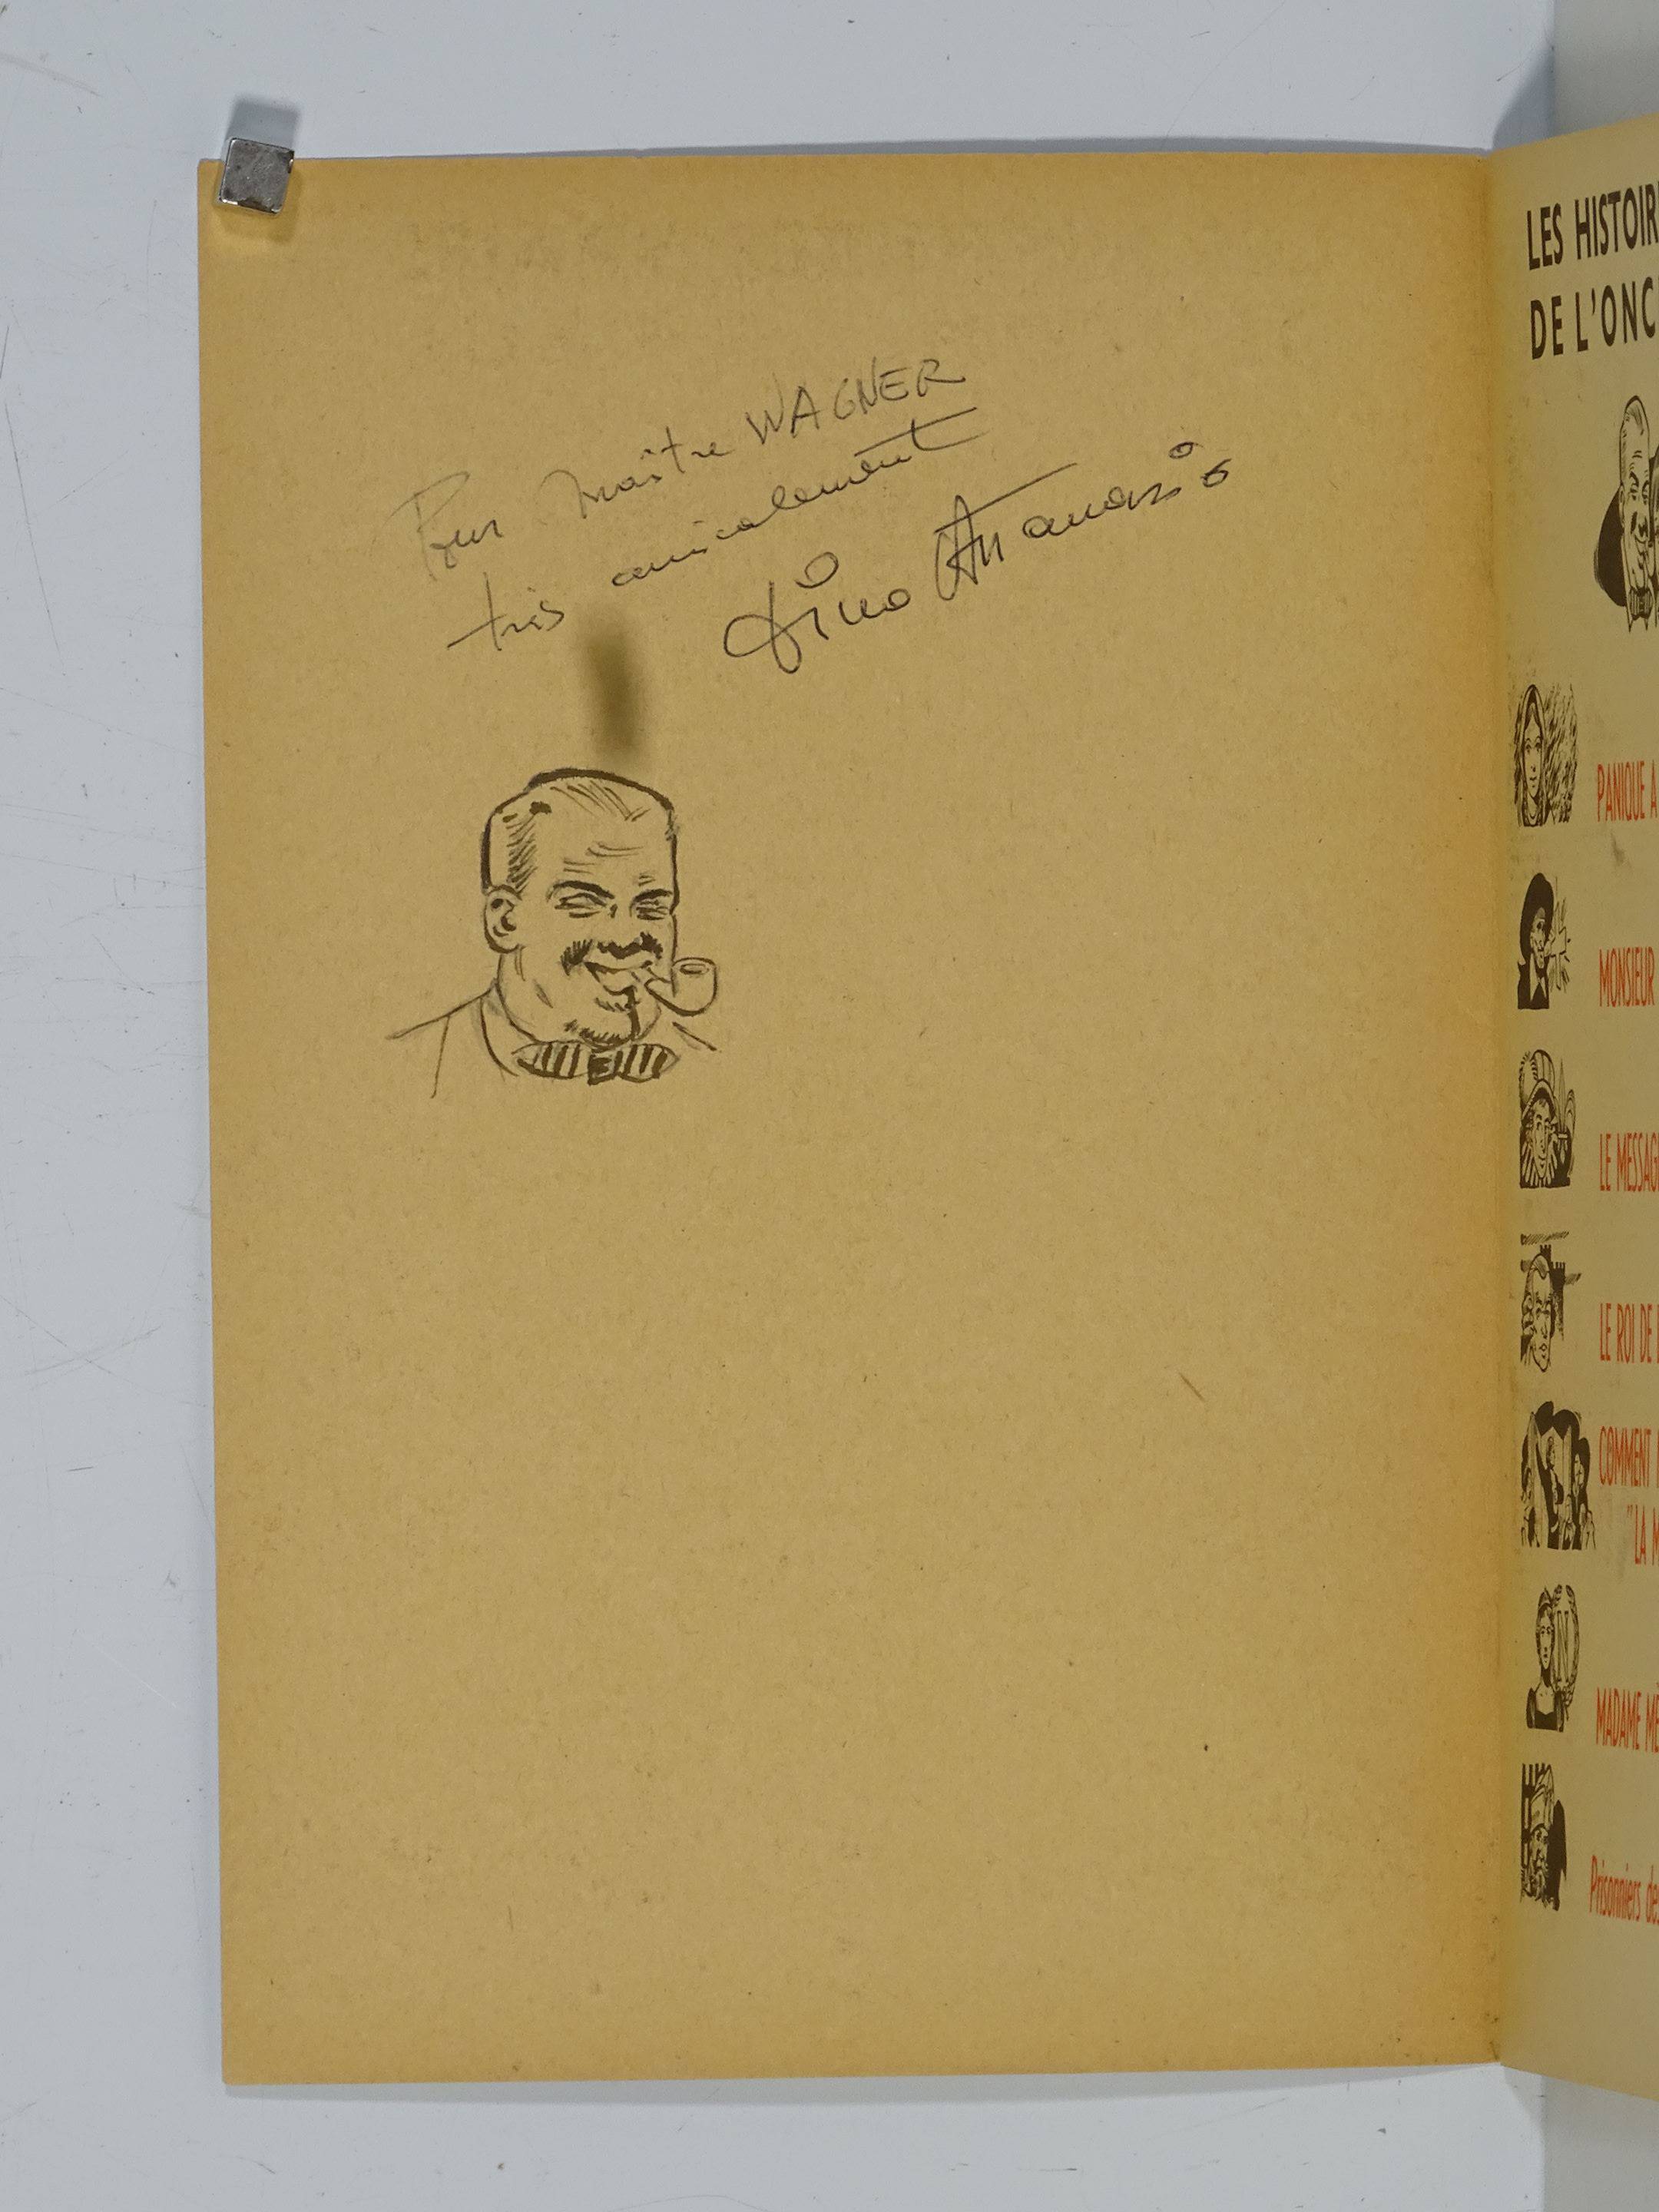 Pour Maître WAGNER
très amicalement
Dino Attanasio
LES HISTOIR
DE L'ONC
PANIQUE A
MONSIEUR
LE MESSAG
LE ROI DE
COMMENT
"LA M
MADAME MÈ
Prisonniers des
N